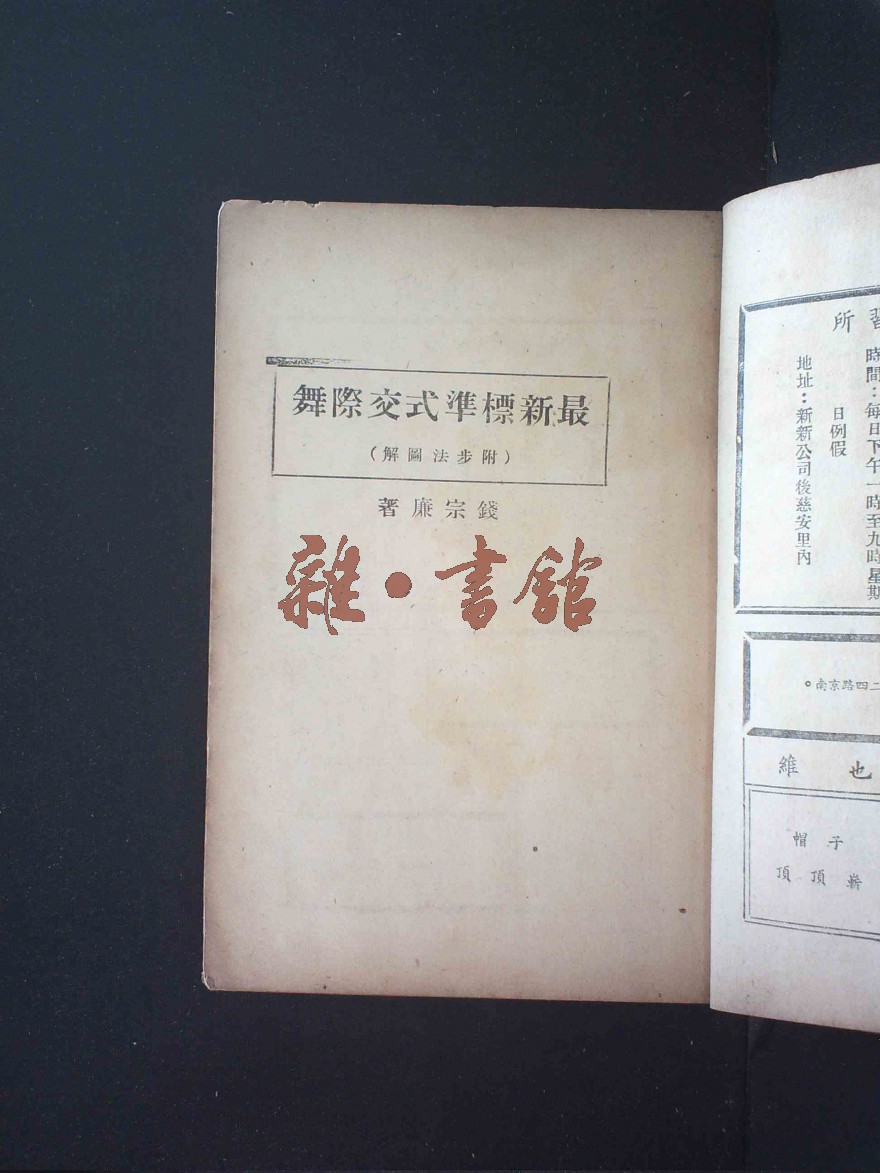 最新標準式交際舞
（附步法圖解）
錢宗廉著
雜·書館
習所
時間：每日下午一時至九時星期
日例假
地址：新新公司後慈安里內
南京路四二
維也
帽子
頂頂嶄